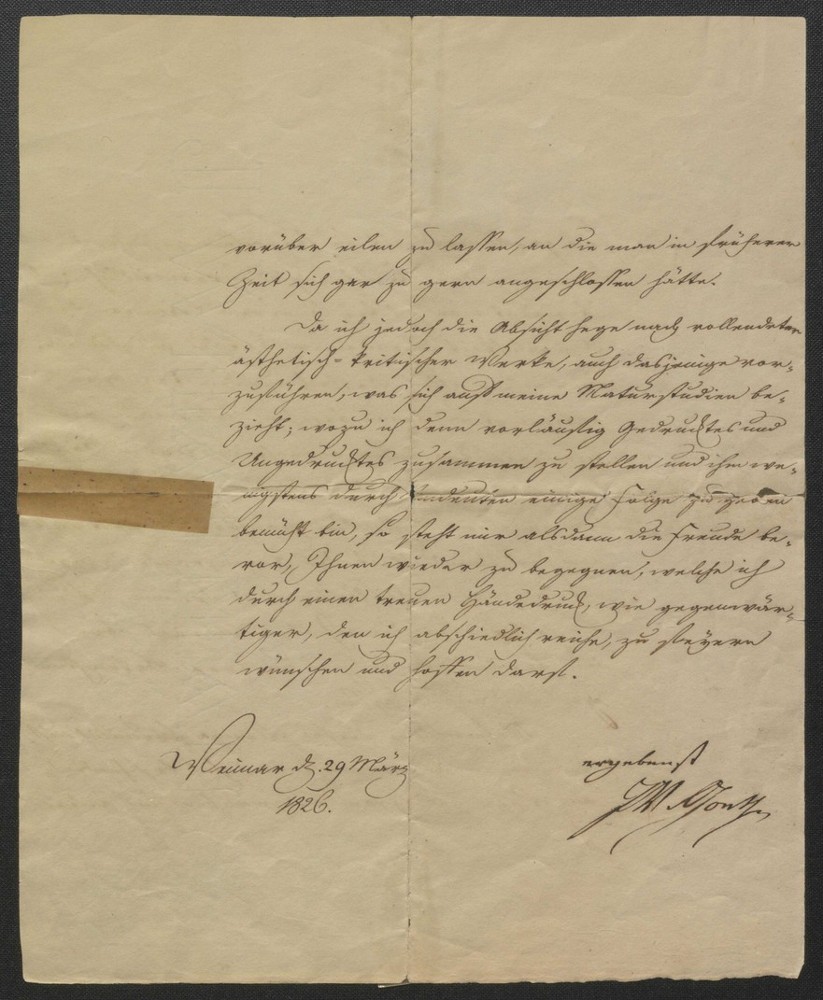 vorüber eilen zu lassen, an die man in früherer
Zeit sich gar zu gern angeschlossen hätte.
Da ich jedoch die Absicht hege nach vollendeten
ästhetisch-kritischer Werke, auch dasjenige vor-
zuführen, was sich auf meine Naturstudien be-
zieht; wozu ich denn vorläufig Gedrucktes und
Ungedrucktes zusammen zu stellen und ihm we-
nigstens durch Andeuten einige Folge zu geben
bemüht bin, so steht mir alsdann die Freude be-
vor, Ihnen wieder zu begegnen, welche ich
durch einen treuen Händedruck, wie gegenwär-
tiger, den ich abschiedlich reiche, zu feyern
wünschen und hoffen darf.
ergebenst
Weimar d. 29 März
JWGoethe
1826.